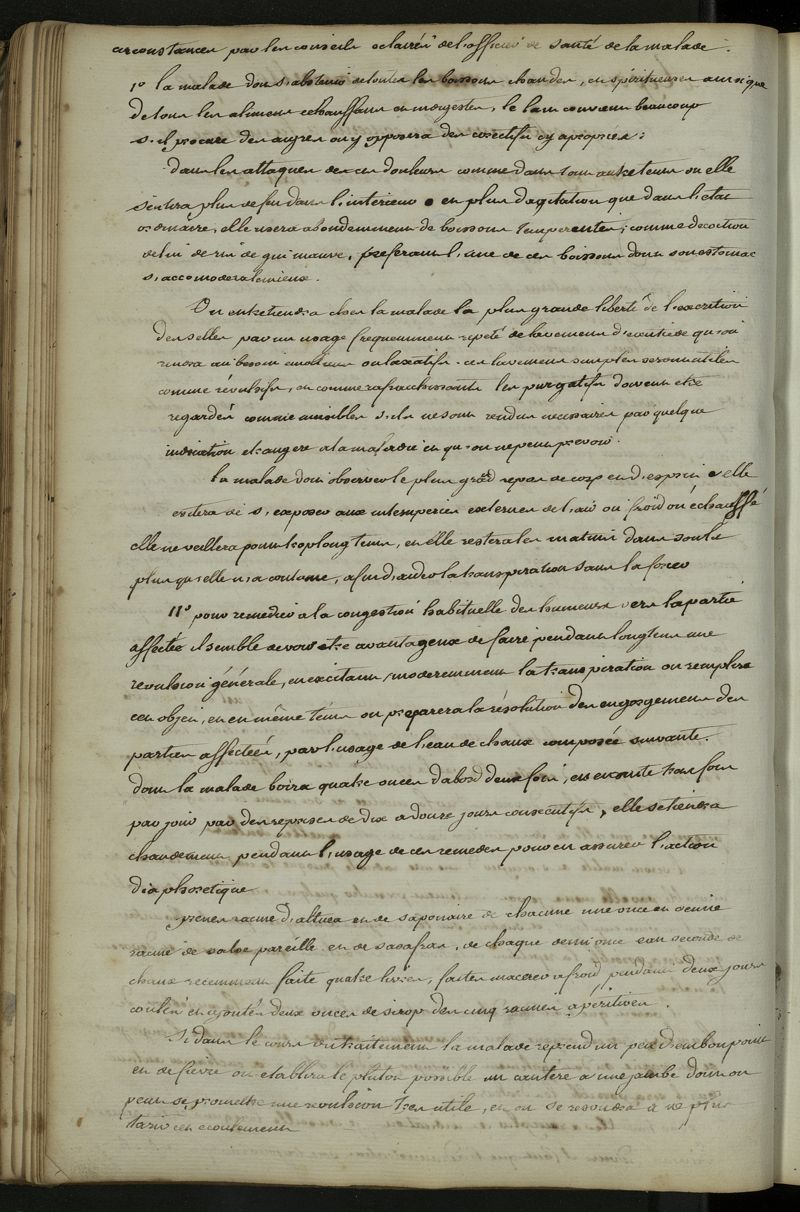 circonstances par les conseils eclairés de l'officier de santé de la malade.
1º la malade doit s'abstenir de toutes les boissons chaudes, et spiritueuses ainsi que
de tous les alimens echauffans ou indigestes, le lait convient beaucoup
s'il procure des aigres on y opposera des corectifs cy apropriés :
dans les attaques de ces douleurs comme dans tout autre tems ou elle
sentira plus de feu dans l'interieur et plus d'agitation que dans l'etat
ordinaire, elle usera abondemment de boissons temperentes ; comme decoction
de lin de ris de gui mauve, preferant l'une de ces boissons dont son estomac
s'accomodera le mieux.
On entretiendra chez la malade la plus grande liberté de l'excretion
des selles par un usage frequemment repeté de lavemens d'eau tiede qu'on
rendra au besoin emoliens ou laxatifs. ces lavemens simples seront utiles
comme révulsifs, et comme rafraichissants les purgatifs doivent etre
regardés comme nuisibles s'ils ne sont rendus necessaires par quelque
indication etrangere a la maladie et qu'on ne peut prevoir.
la malade doit observer le plus grand repos de corps et d'esprit elle
evitera de s'exposer aux intemperies externes de l'air ou froid ou échauffé
elle ne veillera point trop long tems, et elle restera les matins dans son lit
plus qu'elle n'a coutume, afin d'aider la transpiration sans la forcer
11º pour remedier a la congestion habituelle des humeurs vers la partie
affectée il semble devoir etre avantageux de faire pendant longtems une
revulsion générale, en excitant moderemment la transpiration on remplira
cet objet, et en même tems on preparera la résolution des engorgemens des
parties affectées, par l'usage de l'eau de chaux composée suivante.
dont la malade boira quatre onces d'abord deux fois, et ensuite trois fois
par jour par des reprises de dix a douze jours consecutifs, elle se tiendra
chaudement pendant l'usage de ces remedes pour en assurer l'action
diaphoretique
prenes racine d'altuea et de saponaire de chacune une once et demie
racine de salse pareille et de sasafras, de chaque demi once eau seconde de
chaux recemment faite quatre livres, faites macerer a froid pendant deux jours
coulés et ajoutés deux onces de sirop des cinq racines apéritives.
Si dans le cours du traitement la malade reprend un peu d'embonpoint
et de force on etablira le plutot possible un cautere a une jambe dont on
peut se promettre une revulsion tres utile, et on se resoudra a ne plus
tarir cet ecoulement